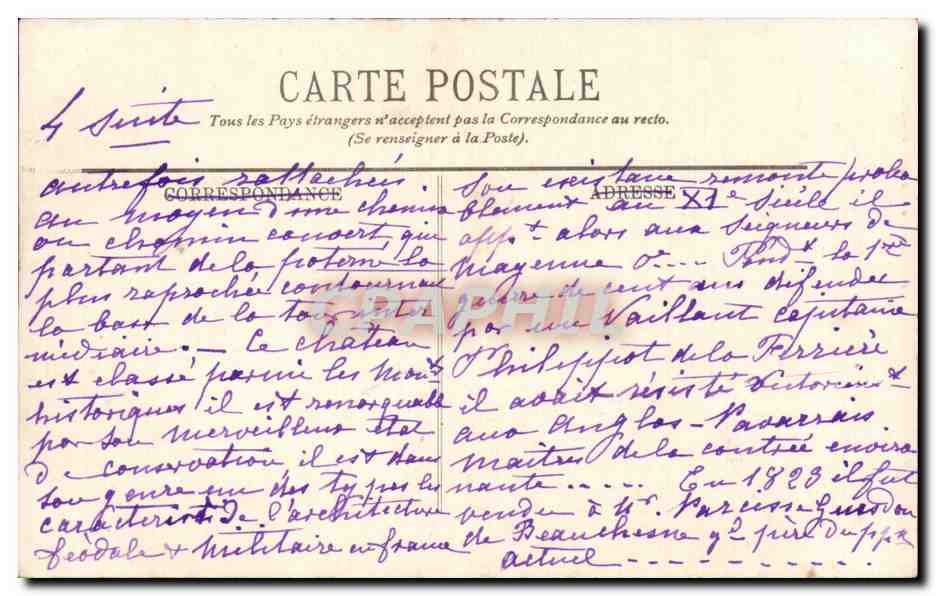 CARTE POSTALE
4 suite
Tous les Pays étrangers n'acceptent pas la Correspondance au recto.
(Se renseigner à la Poste).
CORRESPONDANCE
autrefois rattachés
au moyen d'une chemin
ou chemin couvert, qui
partant de la poterne la
plus raprochée contournau
la base de la tour inter
médiaire. — Le château
est classé parmi les Monts
historiques il est remarquable
par son merveilleux état
de conservation, il est dans
son genre un des types les
caracterisé de l'architecture
féodale & militaire en france
ADRESSE
Son existance remonte proba
blement au XIe siècle il
appt alors aux Seigneurs de
Mayenne la 1re
guerre de cent ans défendu
par une Vaillant capitaine
Philippot de la Ferrière
il avait résisté victorieust
aux Anglos-Navarrais
maîtres de la contrée environ
nante ..... En 1823 il fut
vendu à Mr. Narcisse Guesdon
de Beauchesne père du
actuel
GRAPHIL